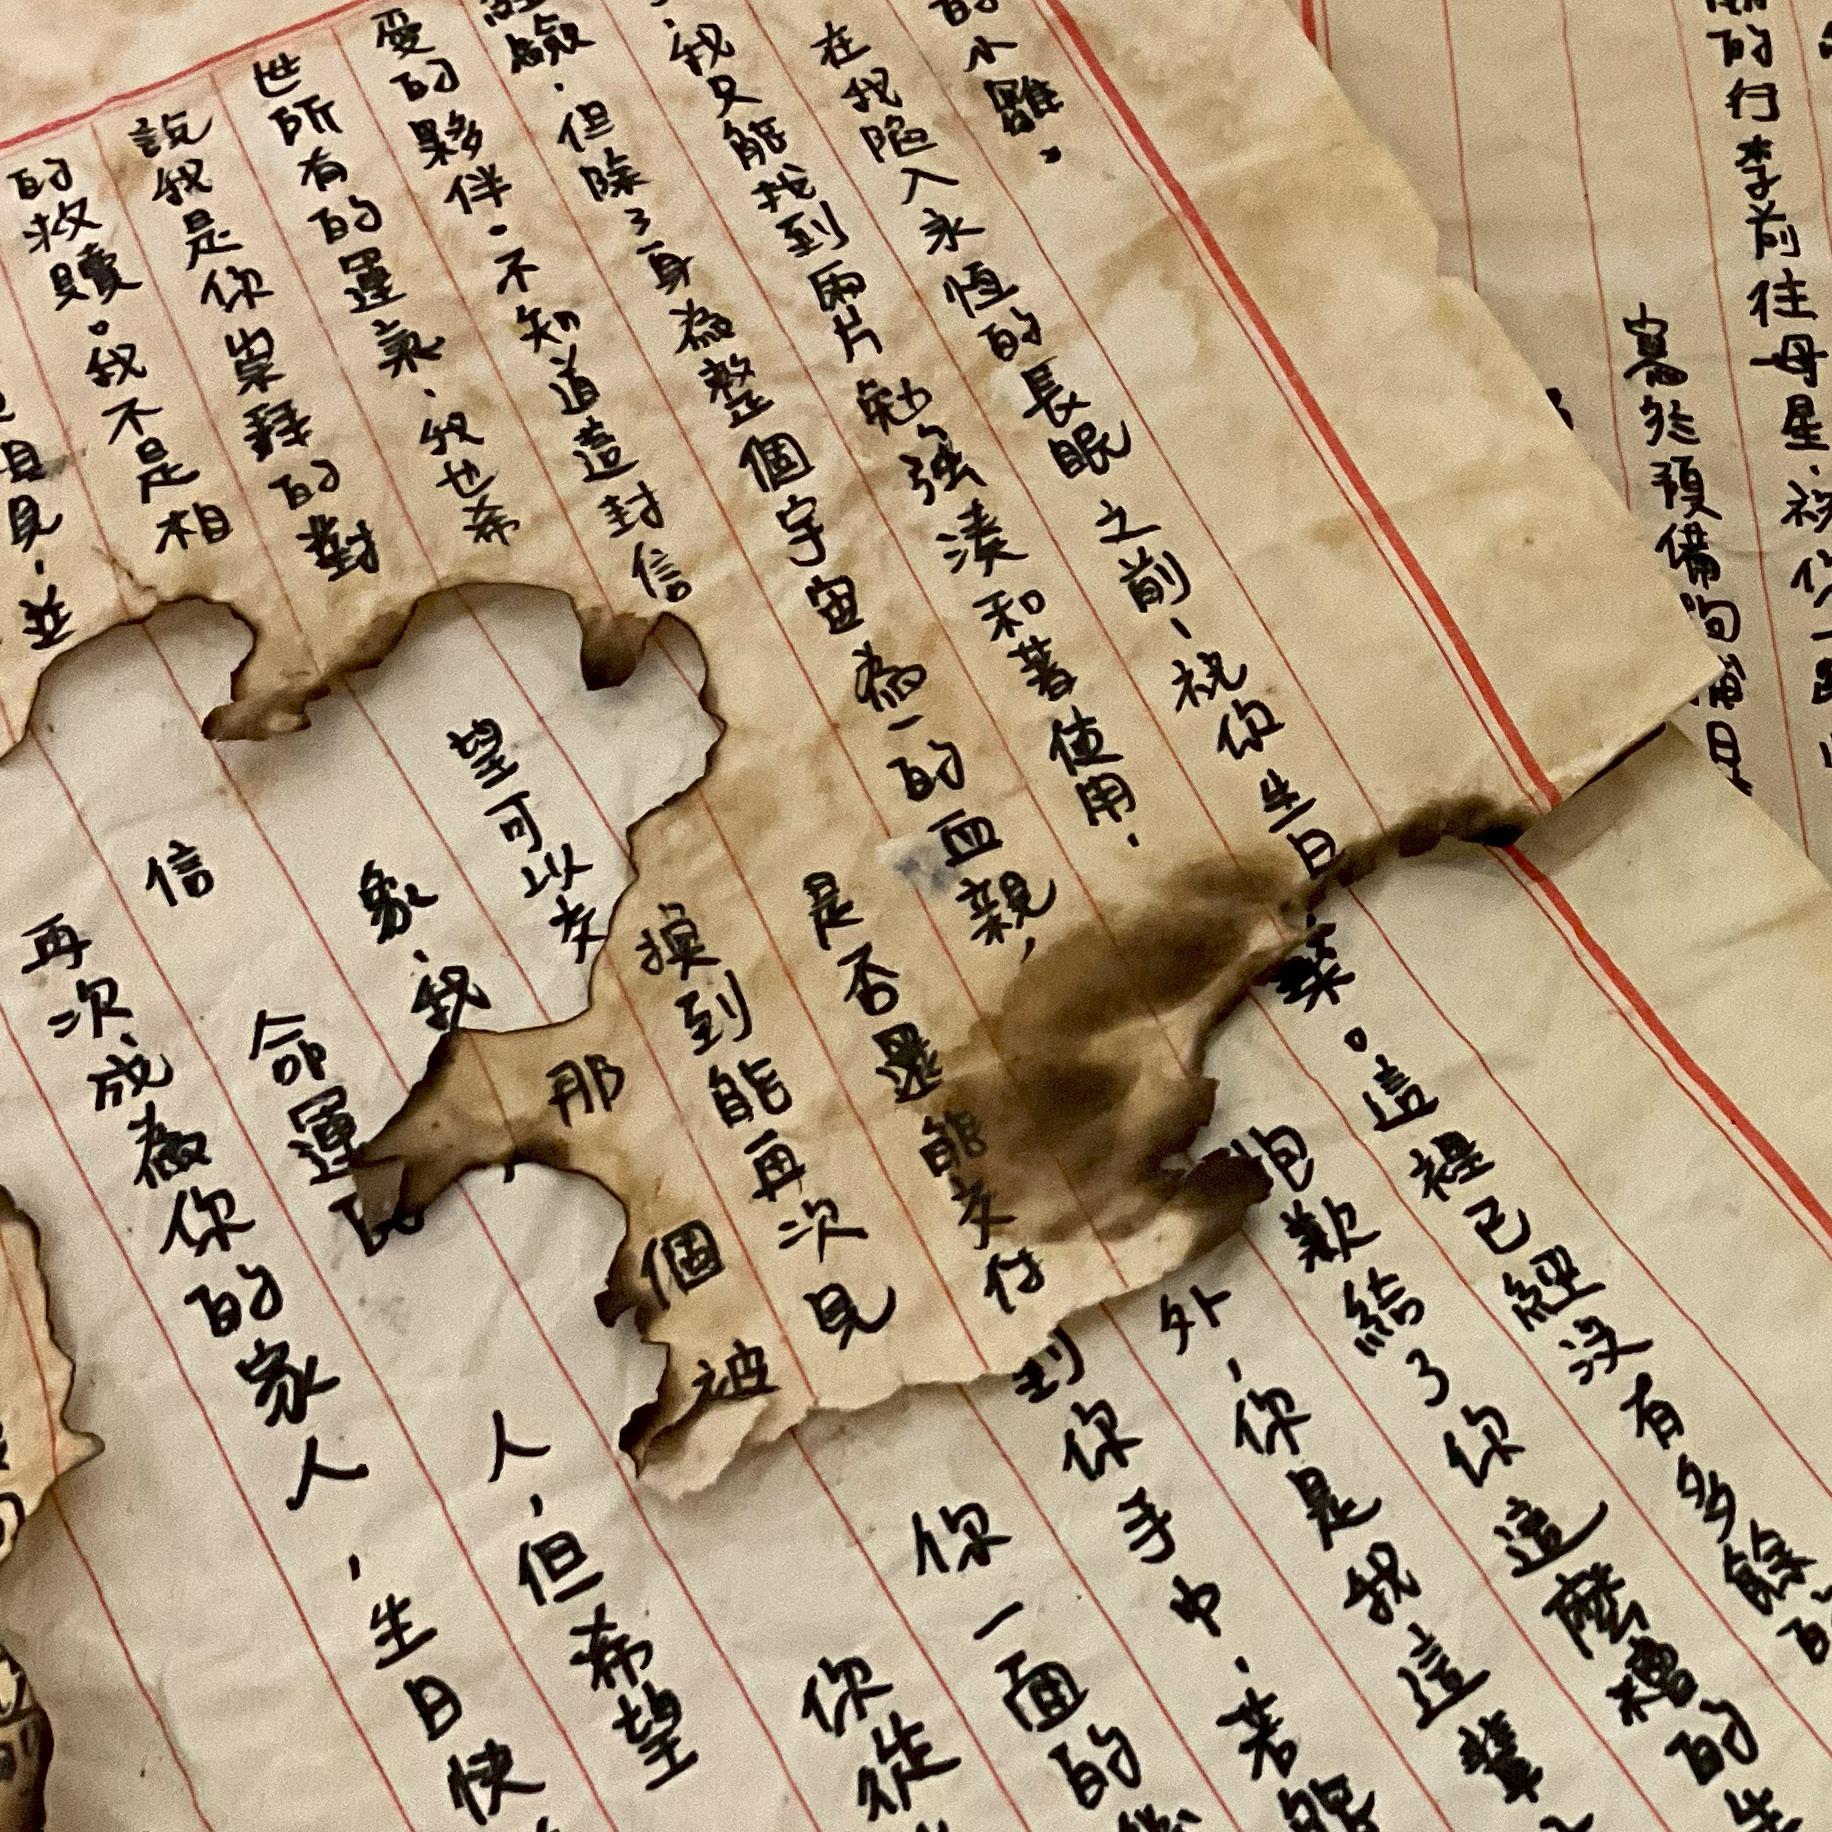 的行李前往母星、祝你一路
預備
的小雛。
在我陷入永恆的長眠之前、祝你生日樂。這裡已經沒有多餘的
我只能找到兩片勉強湊和著使用.抱歉給了你這麼糟的生
驗.但除了身為整個宇宙為一的血親,外,你是我這輩
受的夥伴.不知道這封信是否還能交付到你手中.若能
世所有的運氣、我也希望可以交換到能再次見你一面的
說我是你崇拜的對象、我那個被你從
的救贖。我不是相信命運的人,但希望
見、並再次成為你的家人,生日快